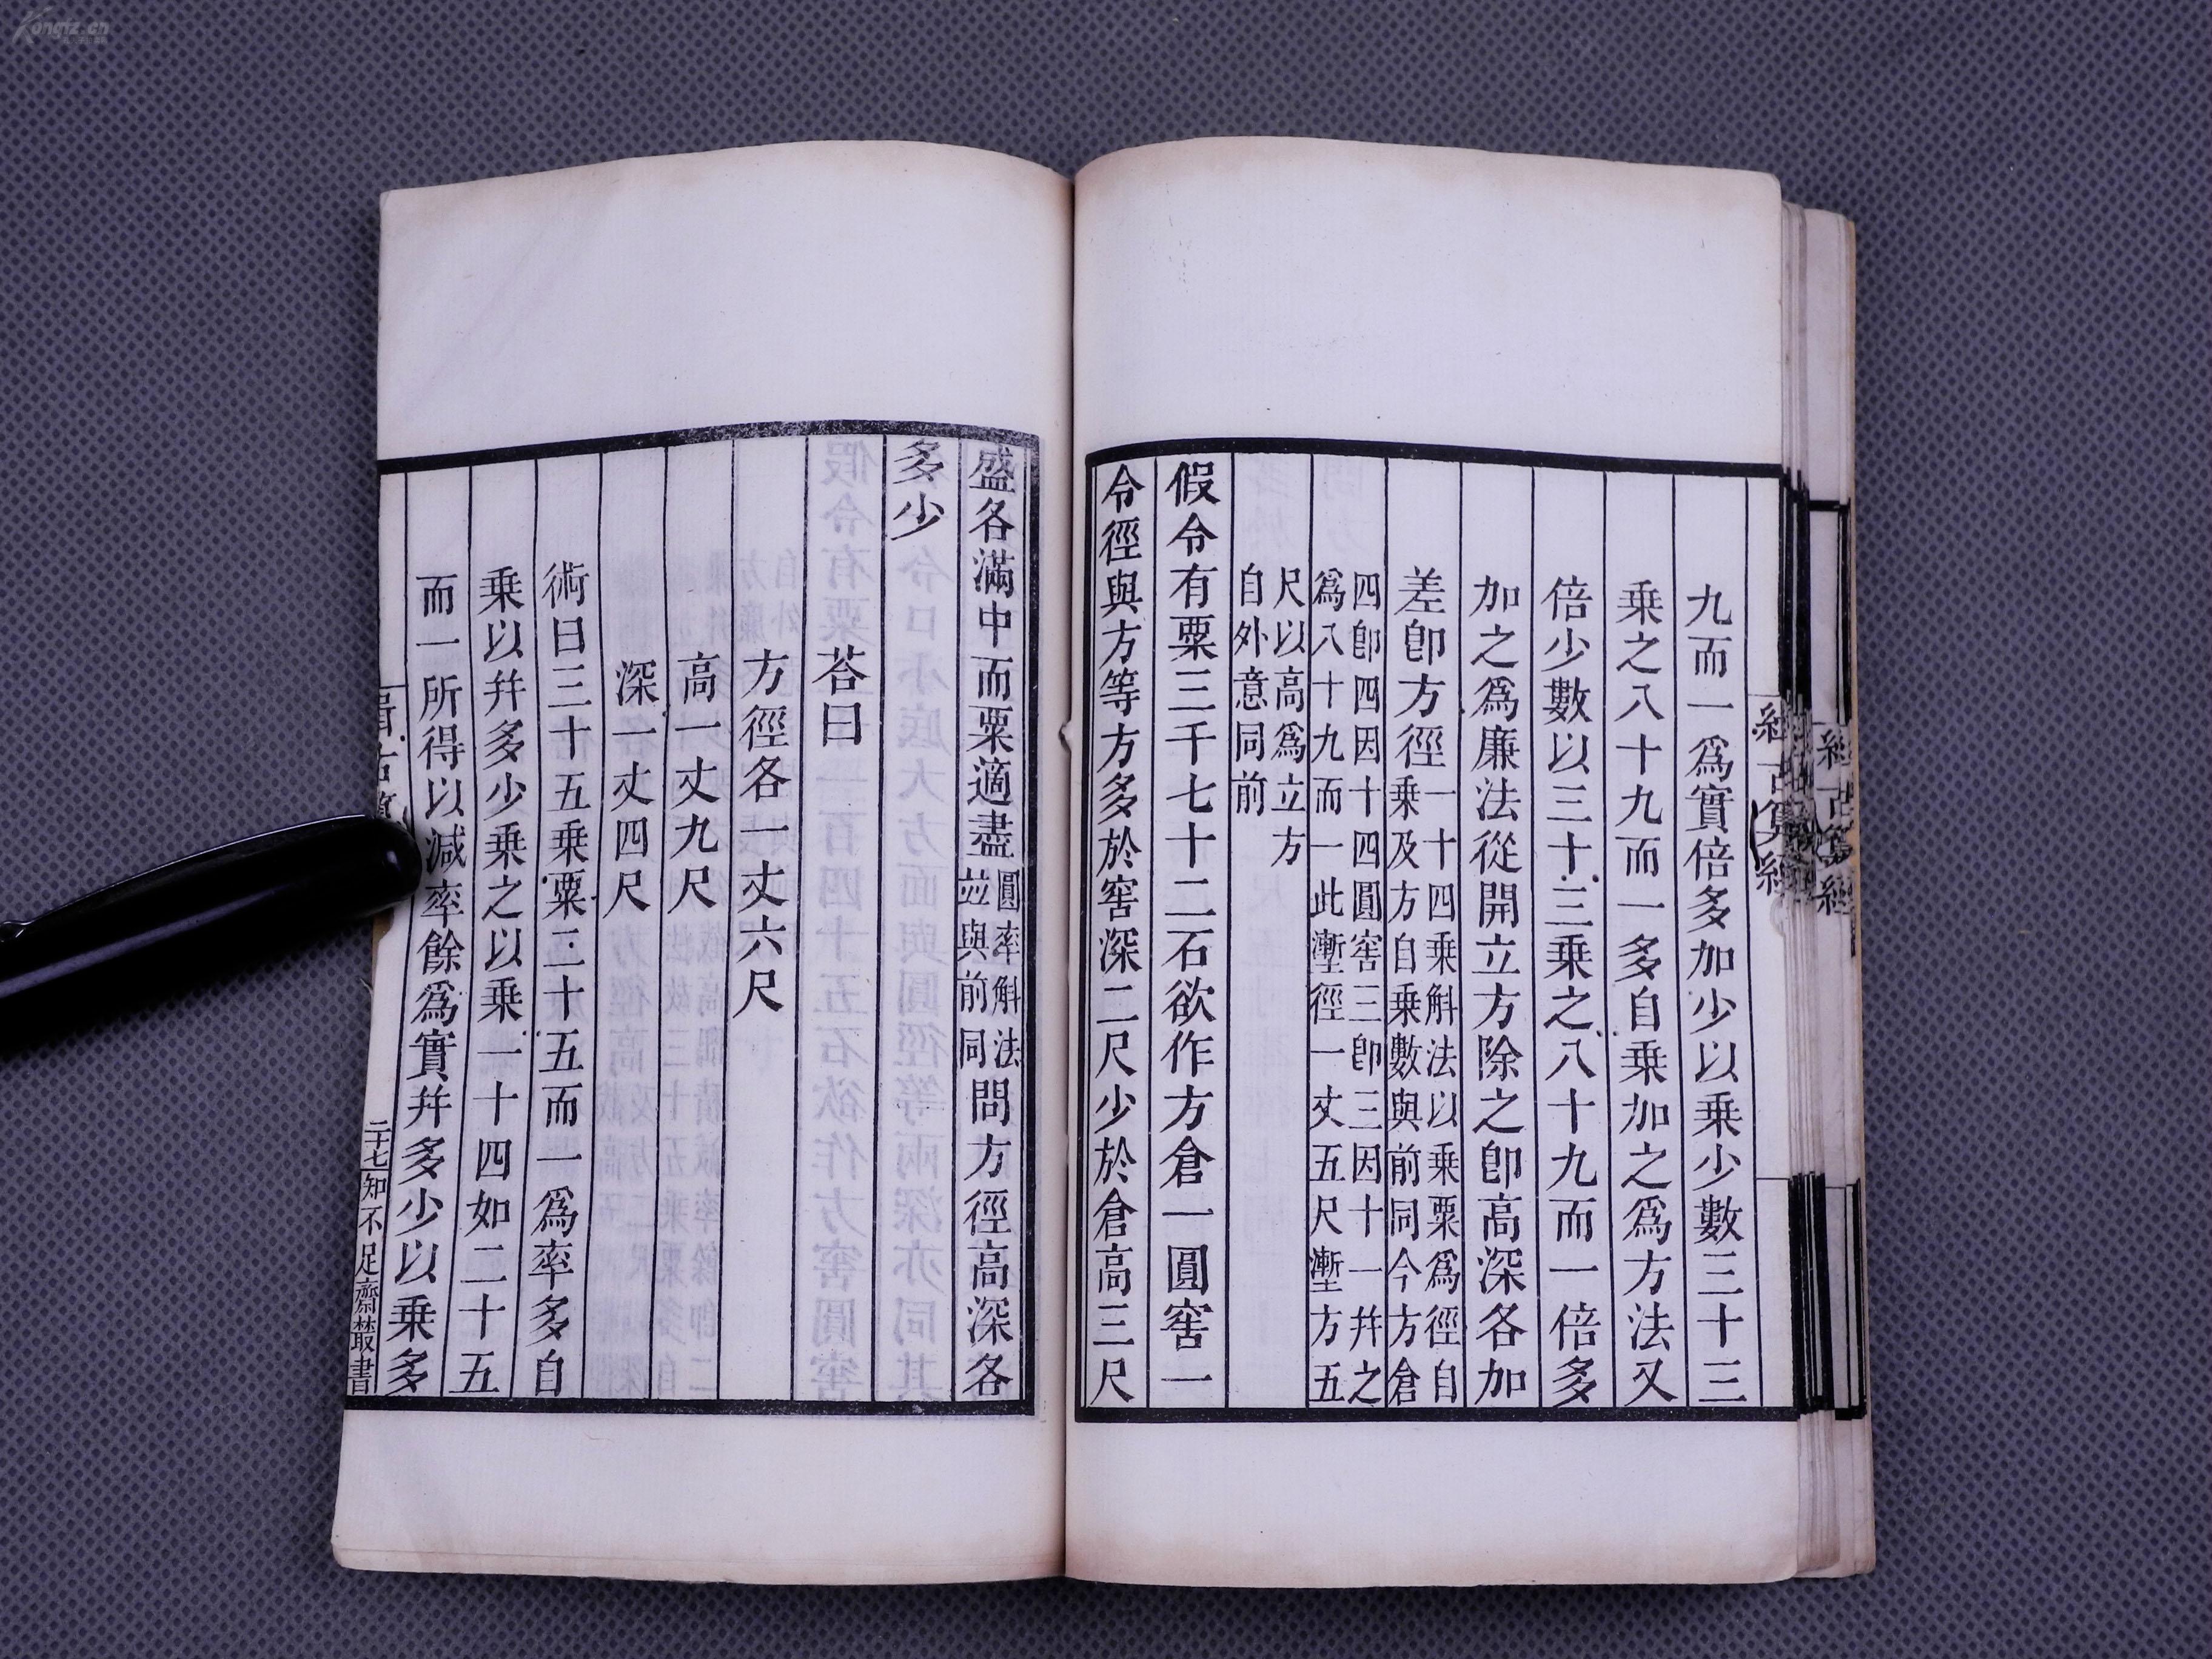 九而一爲實倍多加少以乗少數三十三
乗之八十九而一多自乗加之爲方法又
倍少數以三十三乗之八十九而一倍多
加之爲廉法從開立方除之卽高深各加
差卽方徑一十四乗斛法以乗粟爲徑自
乗及方自乗數與前同今方倉
四卽四因十四圓窖三卽三因十一幷之
爲八十九而一此壍徑一丈五尺壍方五
尺以高爲立方
自外意同前
假令有粟三千七十二石欲作方倉一圓窖一
令徑與方等方多於窖深二尺少於倉高三尺
盛各滿中而粟適盡圓率斛法
竝與前同問方徑高深各
多少
荅曰
方徑各一丈六尺
高一丈九尺
深一丈四尺
術曰三十五乗粟二十五而一爲率多自
乗以幷多少乗之以乗一十四如二十五
而一所得以減率餘爲實幷多少以乗多
二十七
知不足齋叢書
古算經
Kongfz.cn